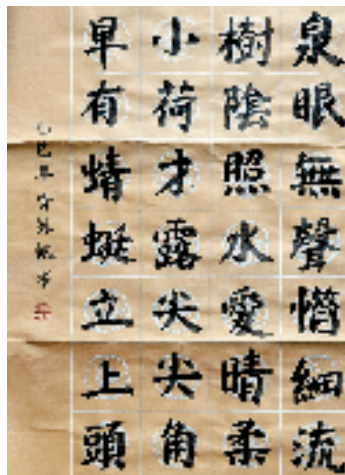 泉眼無聲惜細流
樹陰照水愛晴柔
小荷才露尖尖角
早有蜻蜓立上頭